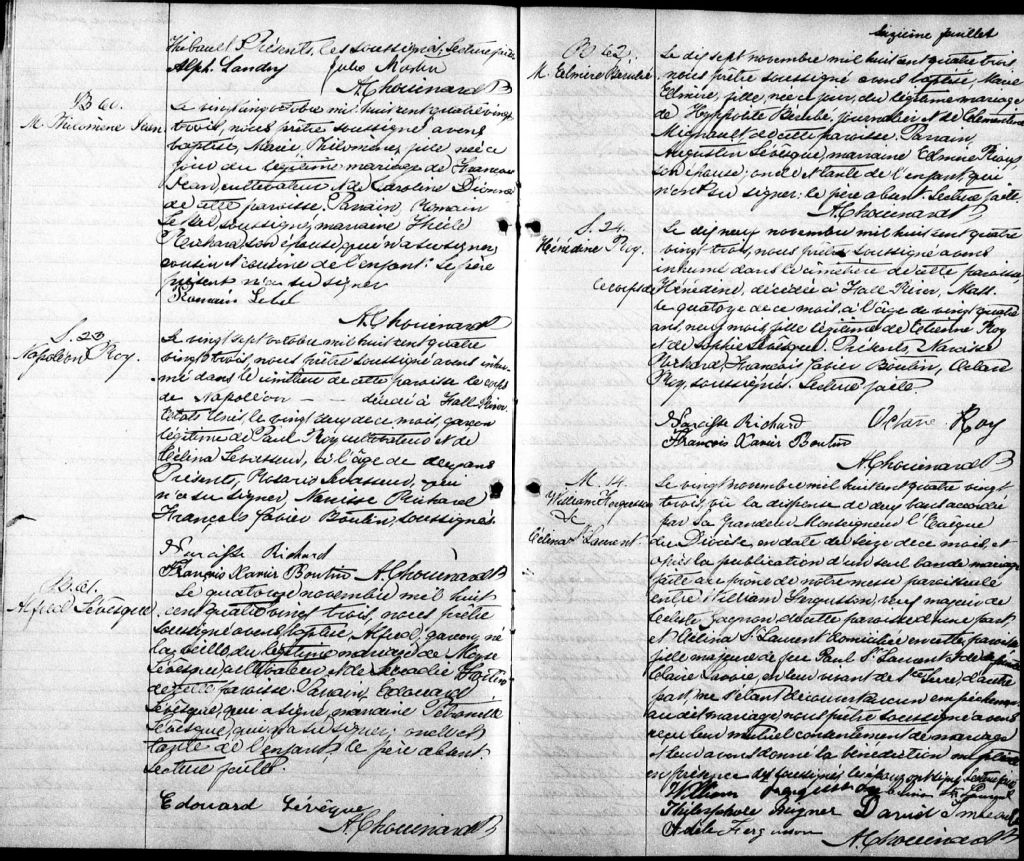 Thibault Présents, les soussignés, Lecture faite
Alph. Landry Jules Morin
A Chouinard P
B 60.
M. Philomène Jean
Le vingt cinq octobre mil huit cent quatre vingt
trois, nous prêtre soussigné avons
baptisé, Marie Philomène, fille née ce
jour du légitime mariage de François
Jean, cultivateur & de Caroline Dionne
de cette paroisse. Parrain, Romain
Lebel, soussigné, marraine
Richard, son épouse, qui n'a su signer,
cousin et cousine de l'enfant. Le père
présent n'a su signer
Romain Lebel
A Chouinard P
S. 23
Napoléon Roy.
Le vingt sept octobre mil huit cent quatre
vingt trois, nous prêtre soussigné avons inhu-
mé dans le cimetière de cette paroisse le corps
de Napoléon — — décédé à Fall River
Etats Unis, le vingt deux de ce mois, garçon
légitime de Paul Roy cultivateur et de
Célina Levasseur, à l'âge de deux ans
Présents, Rosario Levasseur, qui
n'a su signer, Narcisse Richard
François Xavier Boutin, soussignés.
Narcisse Richard
François Xavier Boutin A Chouinard P
B. 61.
Alfred Lévesque
Le quatorze novembre mil huit
cent quatre vingt trois, nous prêtre
soussigné avons baptisé, Alfred, garçon, né
la veille du légitime mariage de
Lévesque, cultivateur & de Leocadie
de cette paroisse. Parrain Edouard
Lévesque, qui a signé, marraine Pétronille
Lévesque, qui n'a su signer; oncle et
tante de l'enfant, le père absent.
Lecture faite.
Edouard Lévêque
A Chouinard P
Sixième feuillet
B 62.
M. Elmire Bérubé
Le dix sept novembre mil huit cent quatre vingt trois
nous prêtre soussigné avons baptisé, Marie
Elmire, fille, née ce jour, du légitime mariage
de Hyppolite Bérubé, journalier et de Clémentine
Michault de cette paroisse. Parrain,
Augustin Lévêsque, marraine Elmire Roy,
son épouse, oncle & tante de l'enfant, qui
n'ont su signer. le père absent. Lecture faite.
A Chouinard P
S. 24.
Hénédine Roy.
Le dix neuf novembre mil huit cent quatre
vingt trois, nous, prêtre soussigné avons
inhumé dans le cimetière de cette paroisse,
le corps de Hénédine, décédée à Fall River, Mass.
le quatorze de ce mois, à l'âge de vingt quatre
ans, neuf mois, fille légitime de Roy
& de Sophie Lévesque. Présents, Narcisse
Richard, François Xavier Boutin, Octave
Roy, soussignés. Lecture faite.
Narcisse Richard Octave Roy
François Xavier Boutin
A Chouinard P
M. 14.
William Fergusson
&
Célina St Laurent.
Le vingt novembre mil huit cent quatre vingt
trois, vu la dispense de deux bans accordée
par Sa Grandeur Monseigneur l'Evêque
du Diocèse, en date du seize de ce mois, et
après la publication d'un seul ban de mariage
faite au prône de notre messe paroissiale
entre William Fergusson, veuf majeur de
Céleste Gagnon de cette paroisse d'une part
et Célina St Laurent domiciliée en cette paroisse
fille majeure de feu Paul St Laurent & de
Claire Lavoie, en leur vivant de Ste Luce, d'autre
part, ne s'étant découvert aucun empêchement
au dit mariage, nous prêtre soussigné avons
reçu leur mutuel consentement de mariage
& leur avons donné la bénédiction nuptiale
en présence des soussignés les époux ont signé. Lecture faite
William Fergusson Célina St Laurent
Théosphole David
Adèle Fergusson
A Chouinard P